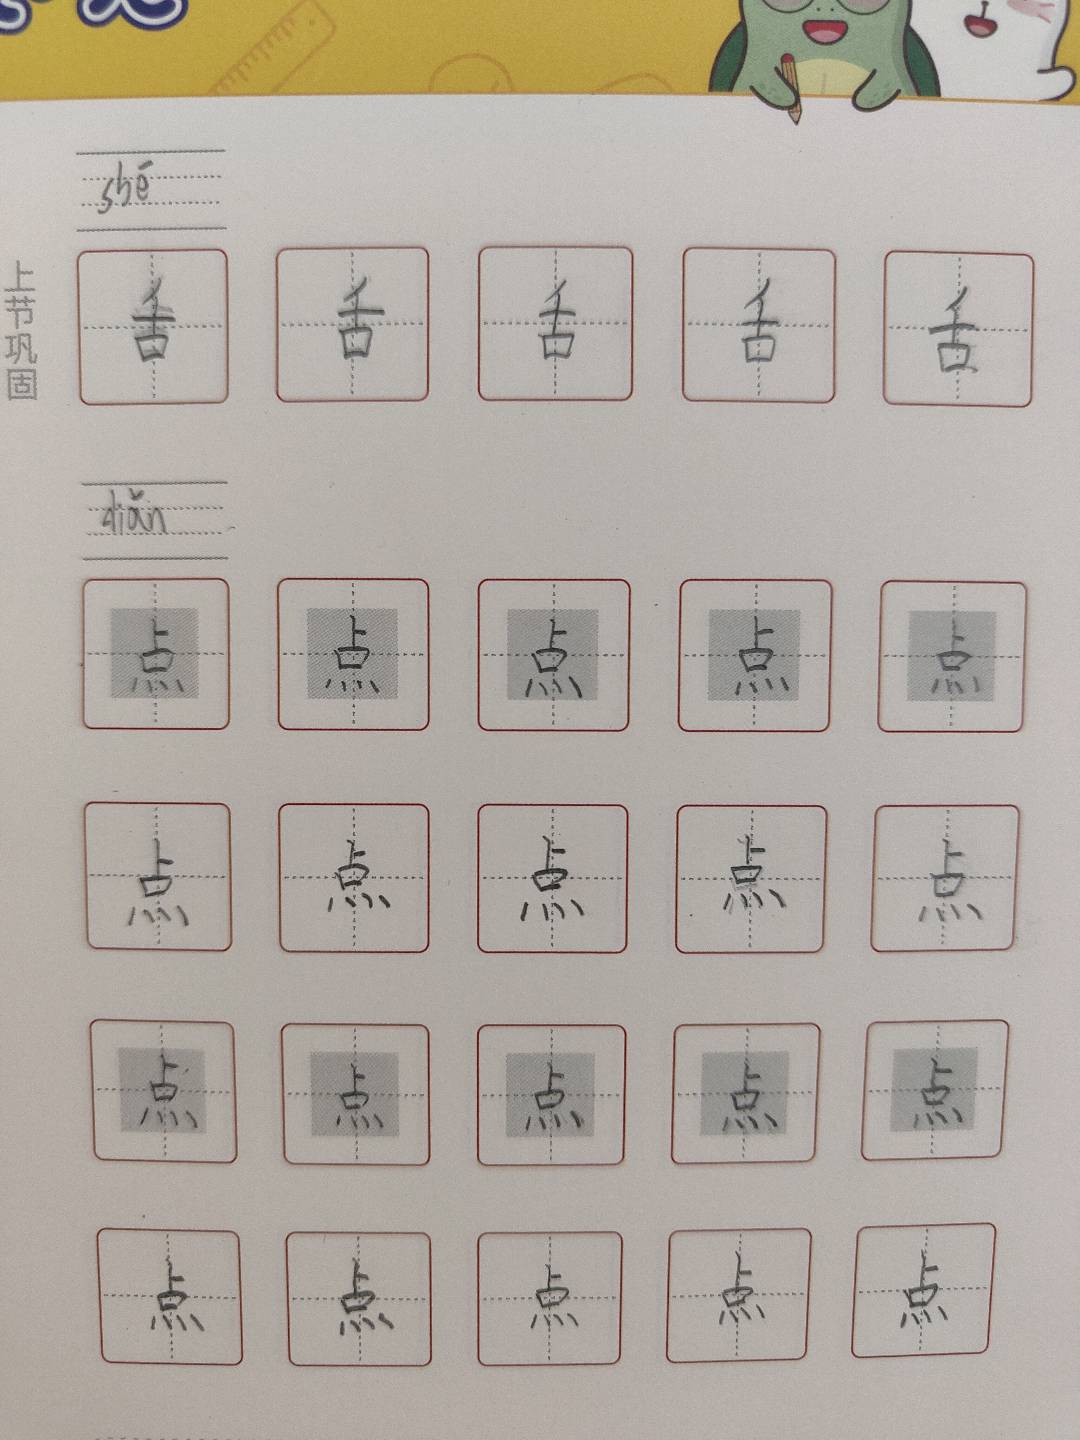 上节巩固
shé
舌 舌 舌 舌 舌
diǎn
点 点 点 点 点
点 点 点 点 点
点 点 点 点 点
点 点 点 点 点